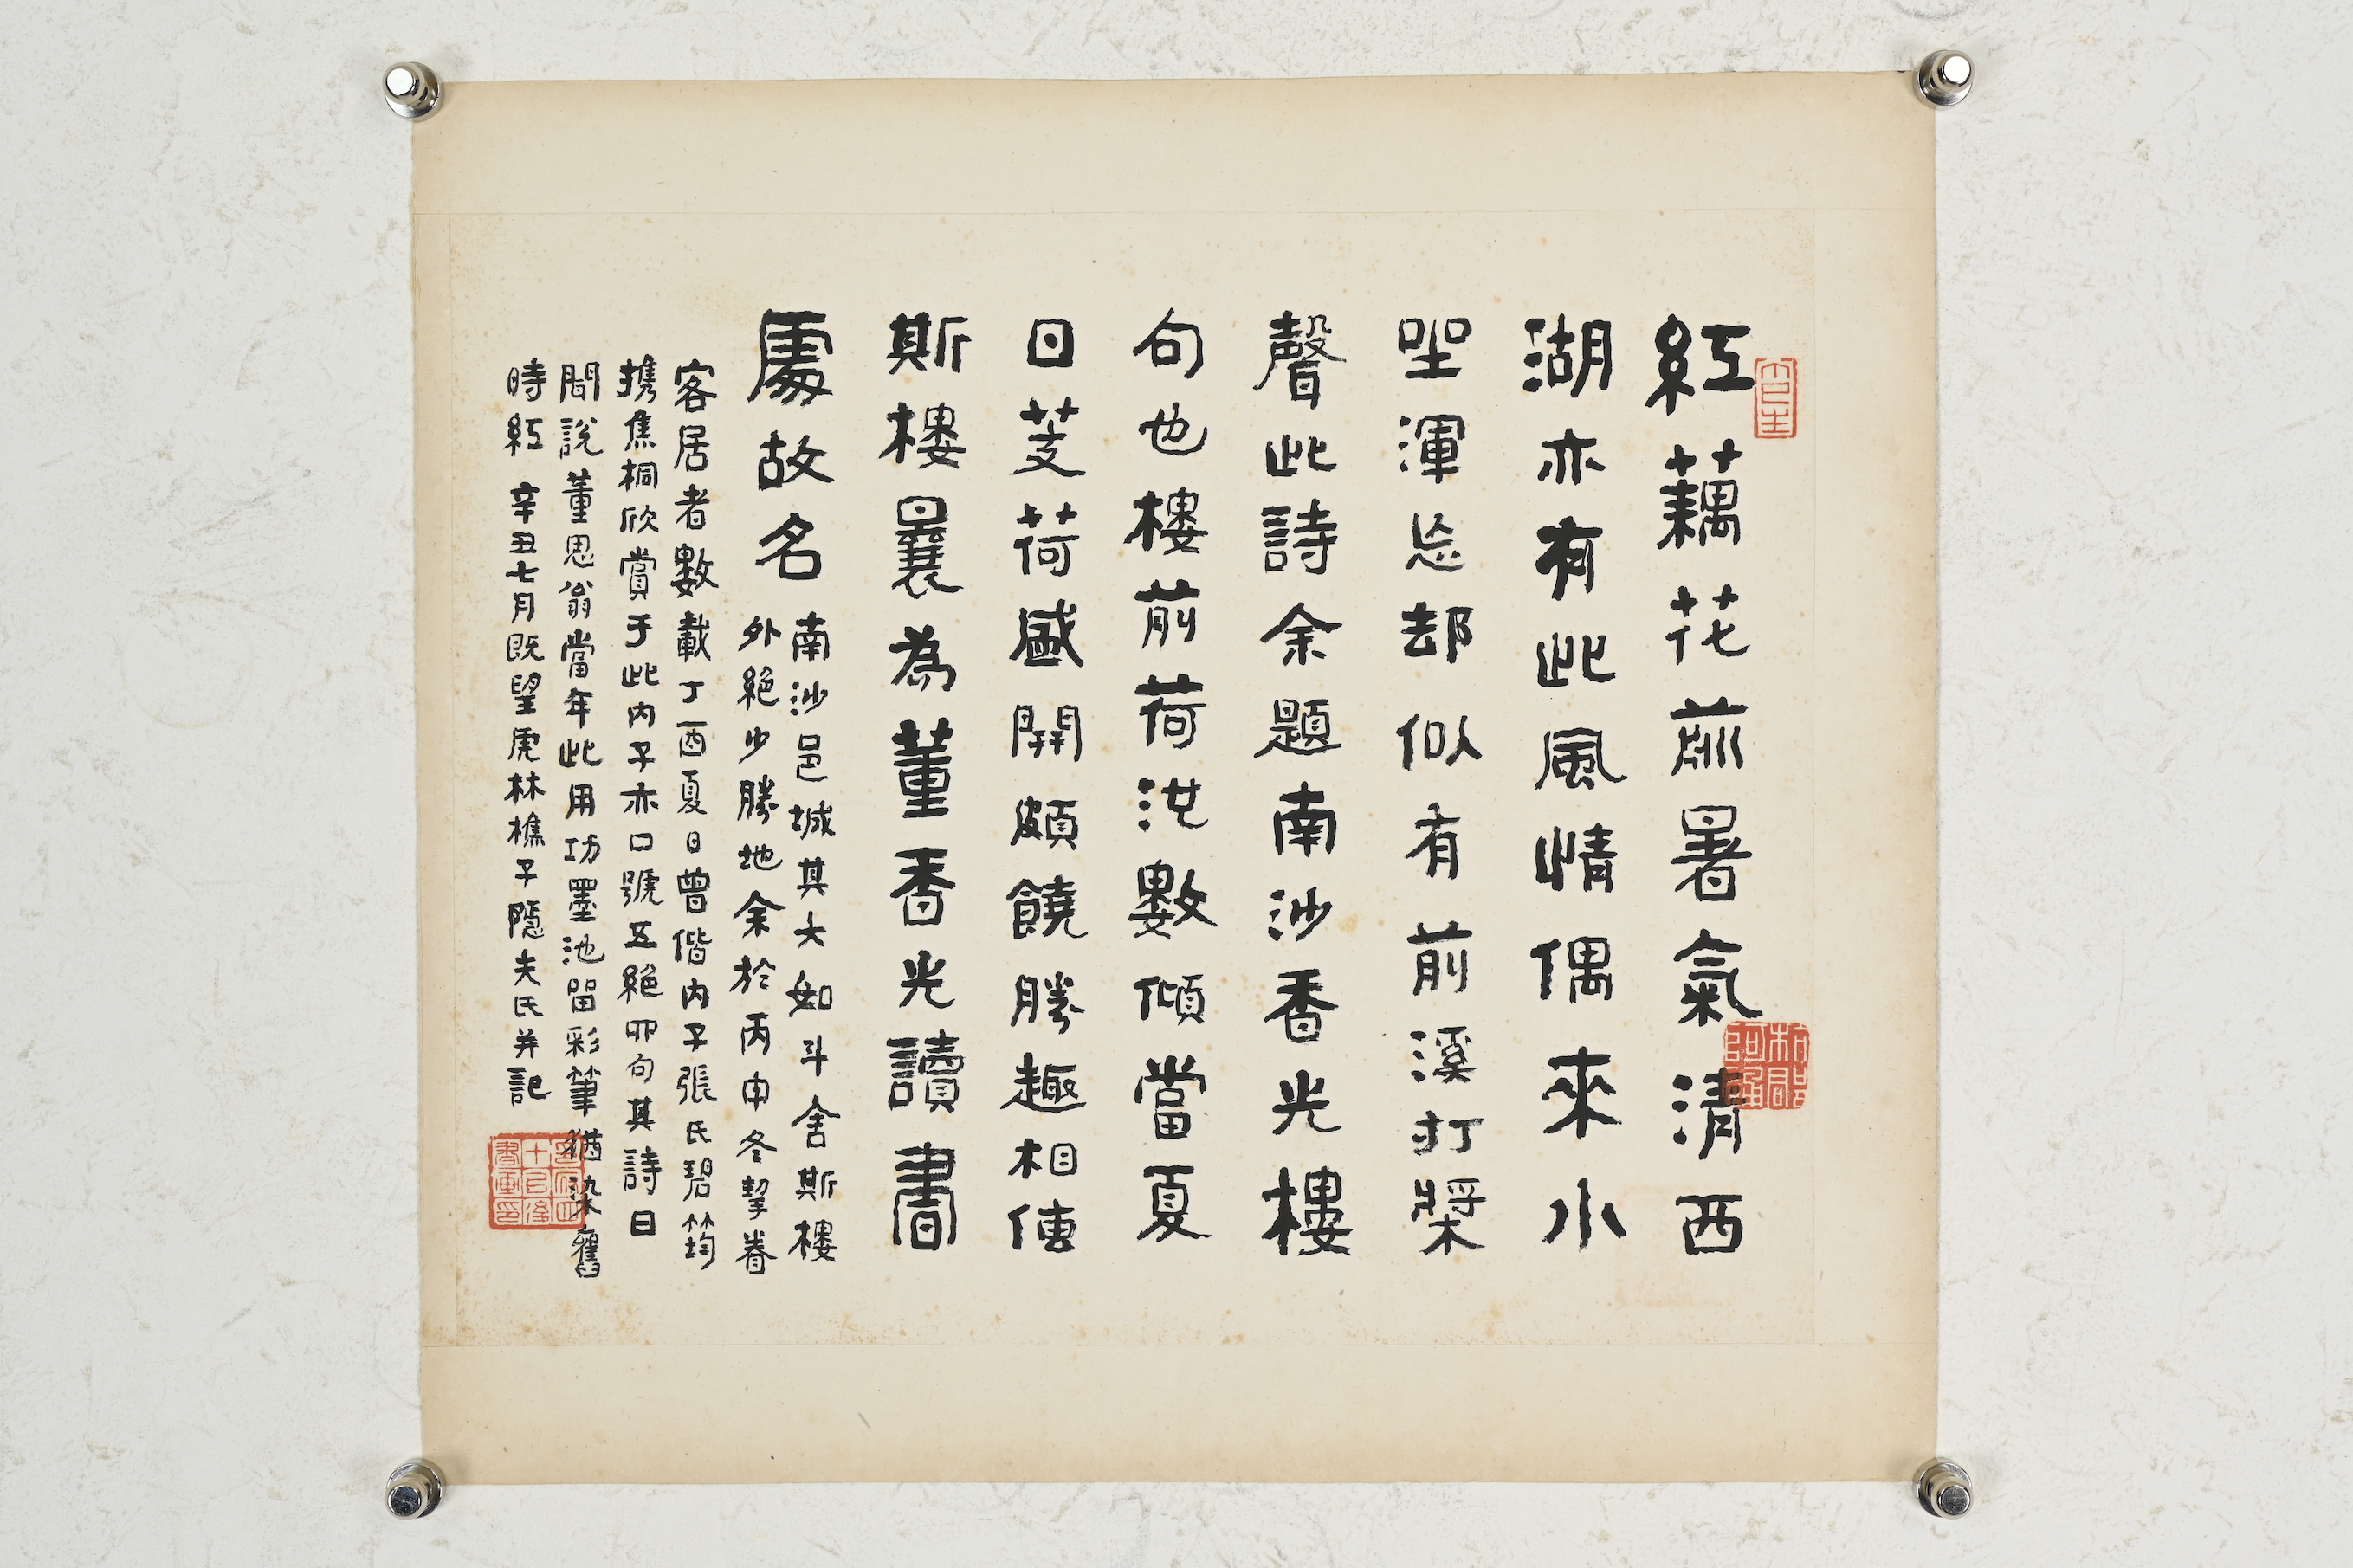 紅藕花前暑氣清西
湖亦有此風情偶來小
坐渾忘却似有前溪打槳
聲此詩余題南沙香光樓
句也樓前荷池數傾當夏
日芰荷盛開頗饒勝趣相傳
斯樓曩為董香光讀書
處故名
南沙邑城其大如斗舍斯樓
外絕少勝地余於丙申冬挈眷
客居者數載丁酉夏日曾偕內子張氏碧筠
携焦桐欣賞于此內子亦口號五絕四句其詩曰
聞說董思翁當年此用功墨池留彩筆猶染舊
時紅 辛丑七月既望虎林樵子隱夫氏并記